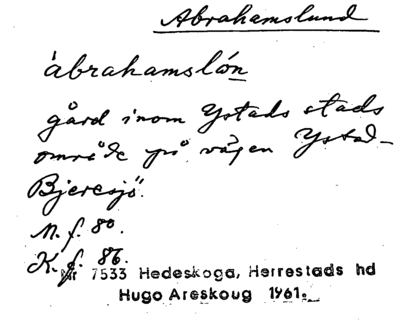 Abrahamslund
àbrahamslón
gård inom Ystads stads
område på vägen Ystad-
Bjeresjö.
M. f. 80.
K. f. 86.
Nr 7533 Hedeskoga, Herrestads hd
Hugo Areskoug 1961.